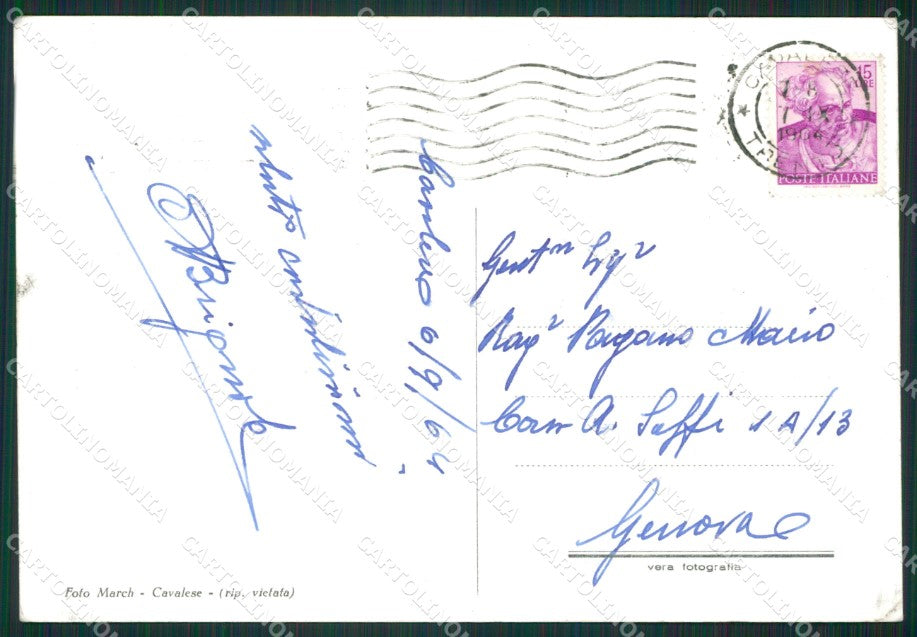 Cavalese 6/9/64
saluti cordialissimi
Brignole
15
LIRE
POSTE ITALIANE
1964
Gent.mo Sig.r
Rag.r Pagano Mario
Corso A. Saffi 1A/13
Genova
vera fotografia
Foto March - Cavalese - (rip. vietata)
CARTOLINOMANIA